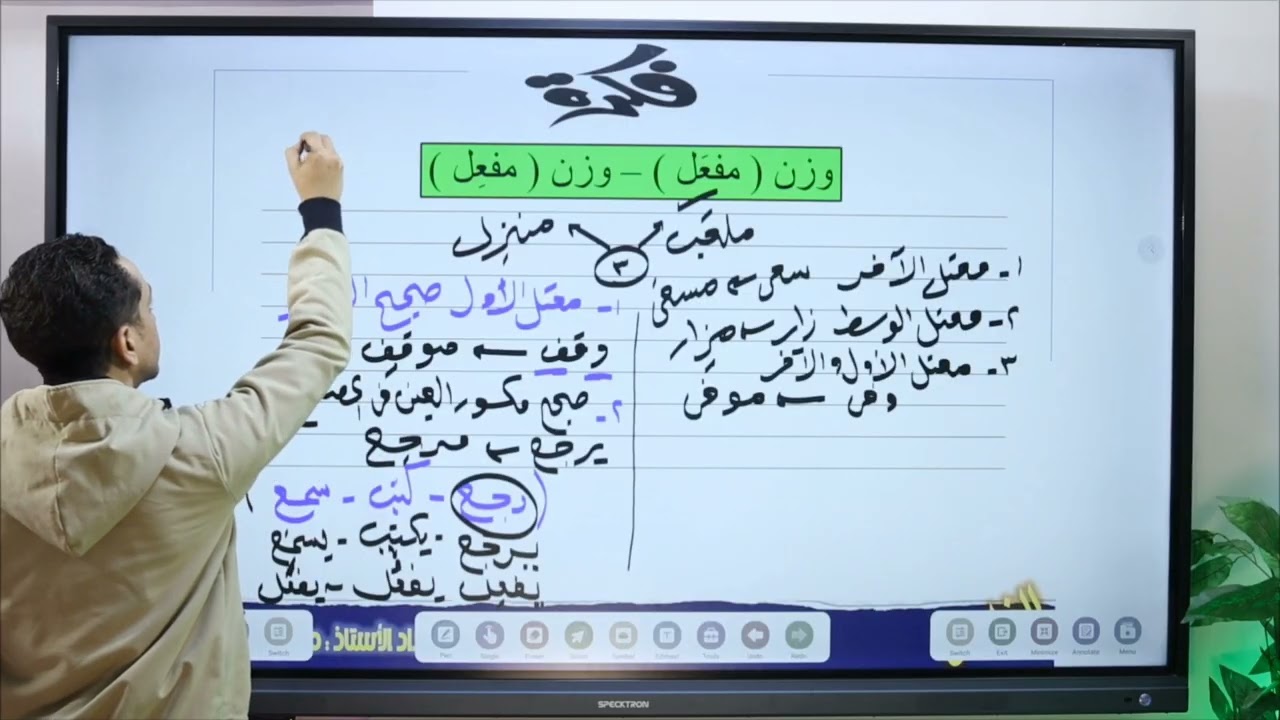 فكرة
وزن ( مفعَل ) – وزن ( مفعِل )
ملعب
منزل
٣
١- معتل الآخر سعى ← مسعى
٢- معتل الوسط زار ← مزار
٣- معتل الأول والآخر
وفى ← موفى
١- معتل الأول صحيح
وقف ← موقف
٢- صحيح مكسور العين في
يرجع ← مرجع
( رجع - كتب - سمع
يرجع - يكتب - يسمع
يفعِل يفعُل - يفعَل
الأستاذ :
Switch
Pen
Single
Eraser
Select
Symbol
Tools
Undo
Redo
Switch
Exit
Minimize
Annotate
Menu
SPECKTRON